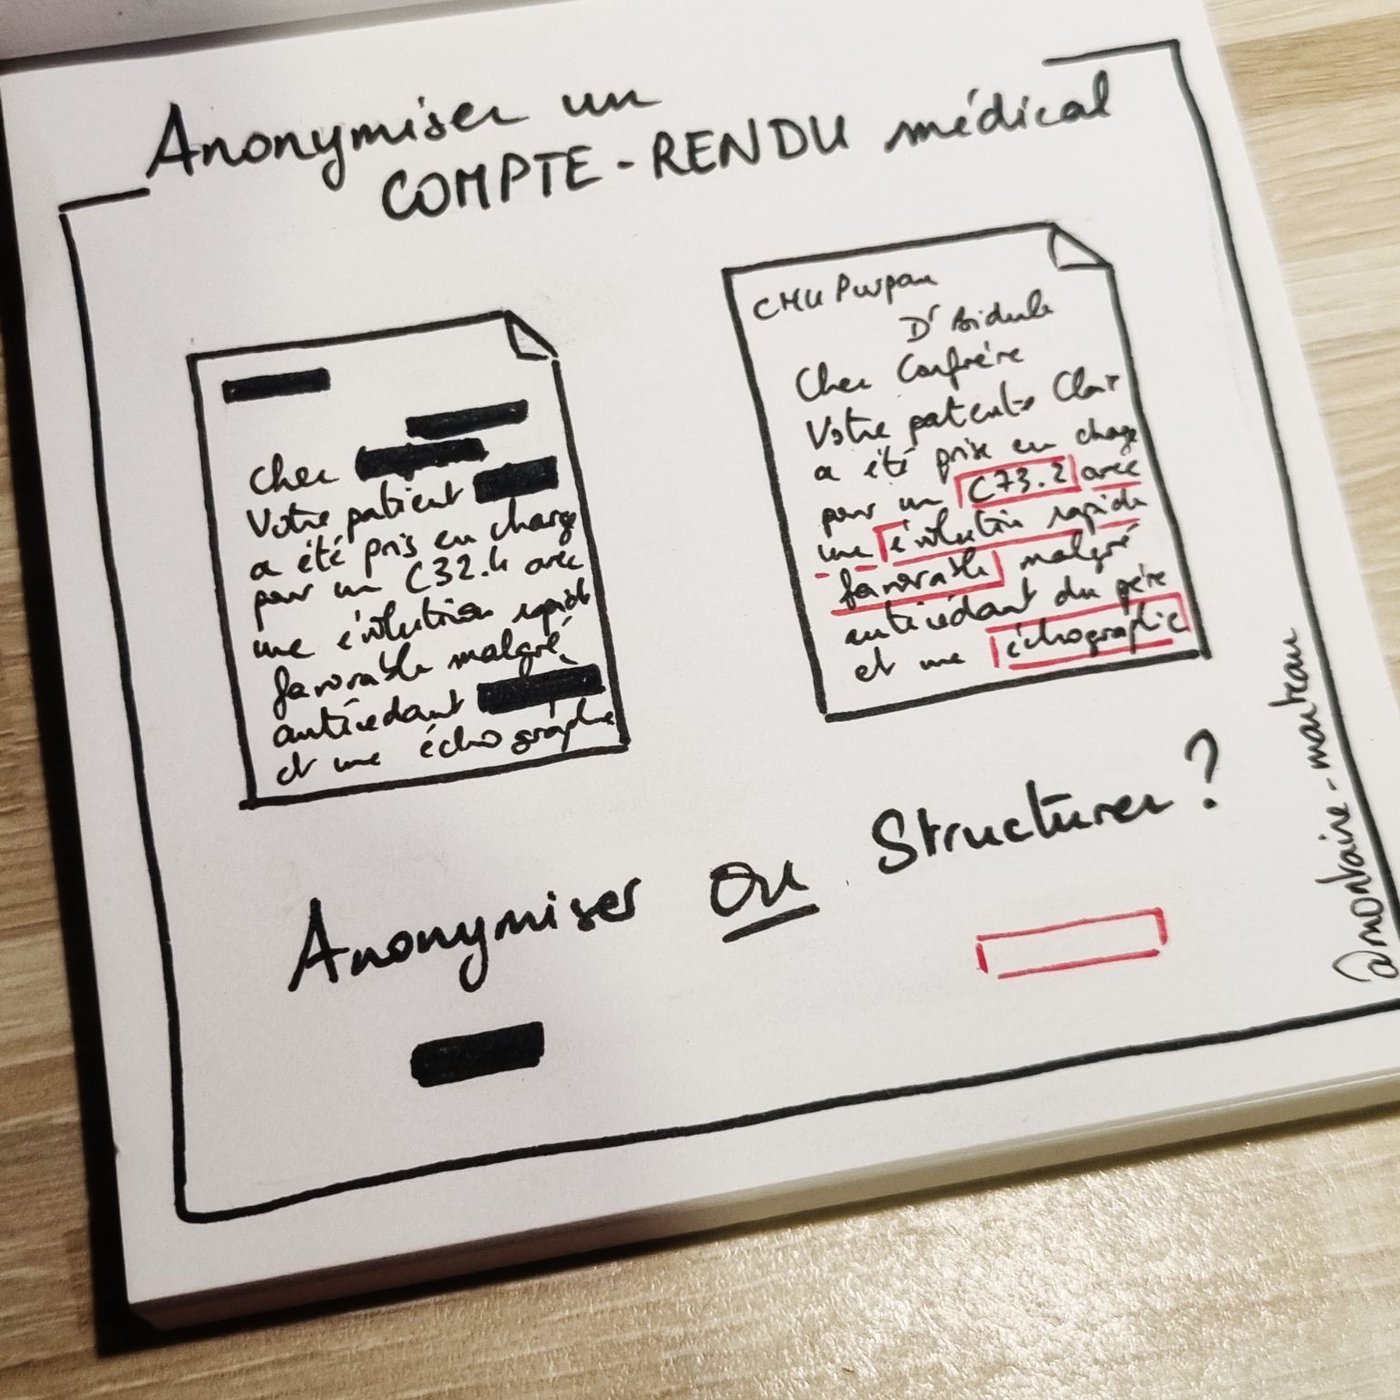 Anonymiser un
COMPTE-RENDU médical
Cher
Votre patient
a été pris en charge
pour un C32.4 avec
une évolution rapide
favorable malgré
antécédant
et une échographie
CHU Purpan
Dr Bidule
Cher Confrère
Votre patiente Clair
a été prise en charge
pour un C73.2 avec
une évolution rapide
favorable malgré
antécédant du père
et une échographie
Anonymiser ou Structurer ?
@montaire-marteau